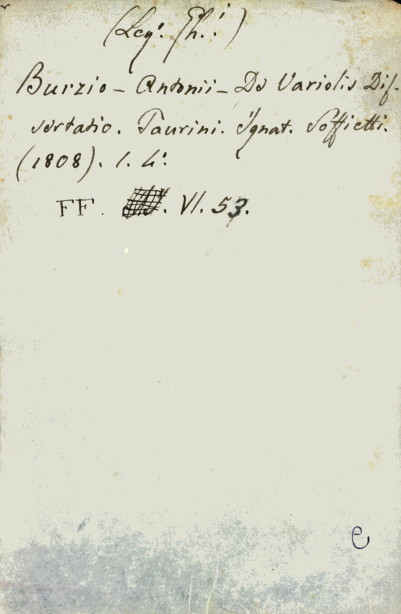 (Leg. Gh.i)
Burzio - Antonii - De Variolis Dis-
sertatio. Taurini. Ignat. Soffietti.
(1808). 1. 4.°
FF. . VI. 53.
e